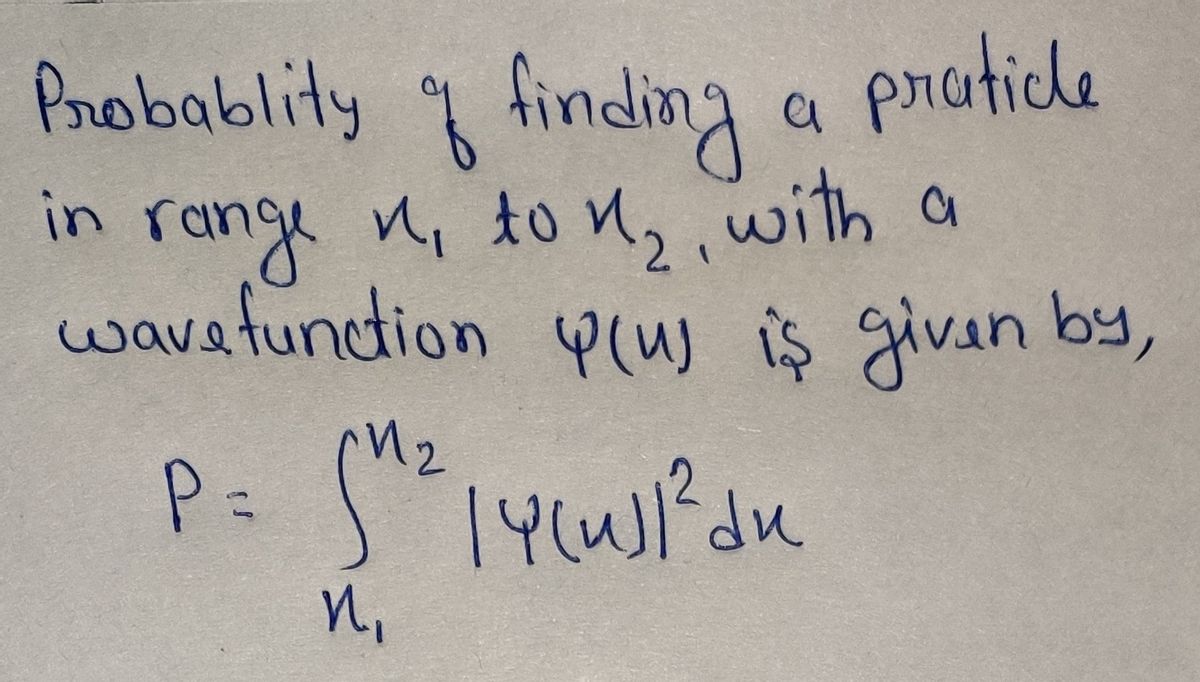 Probablity of finding a praticle
in range x₁ to x₂, with a
wavefunction ψ(x) is given by,
P = ∫_{x₁}^{x₂} |ψ(x)|² dx